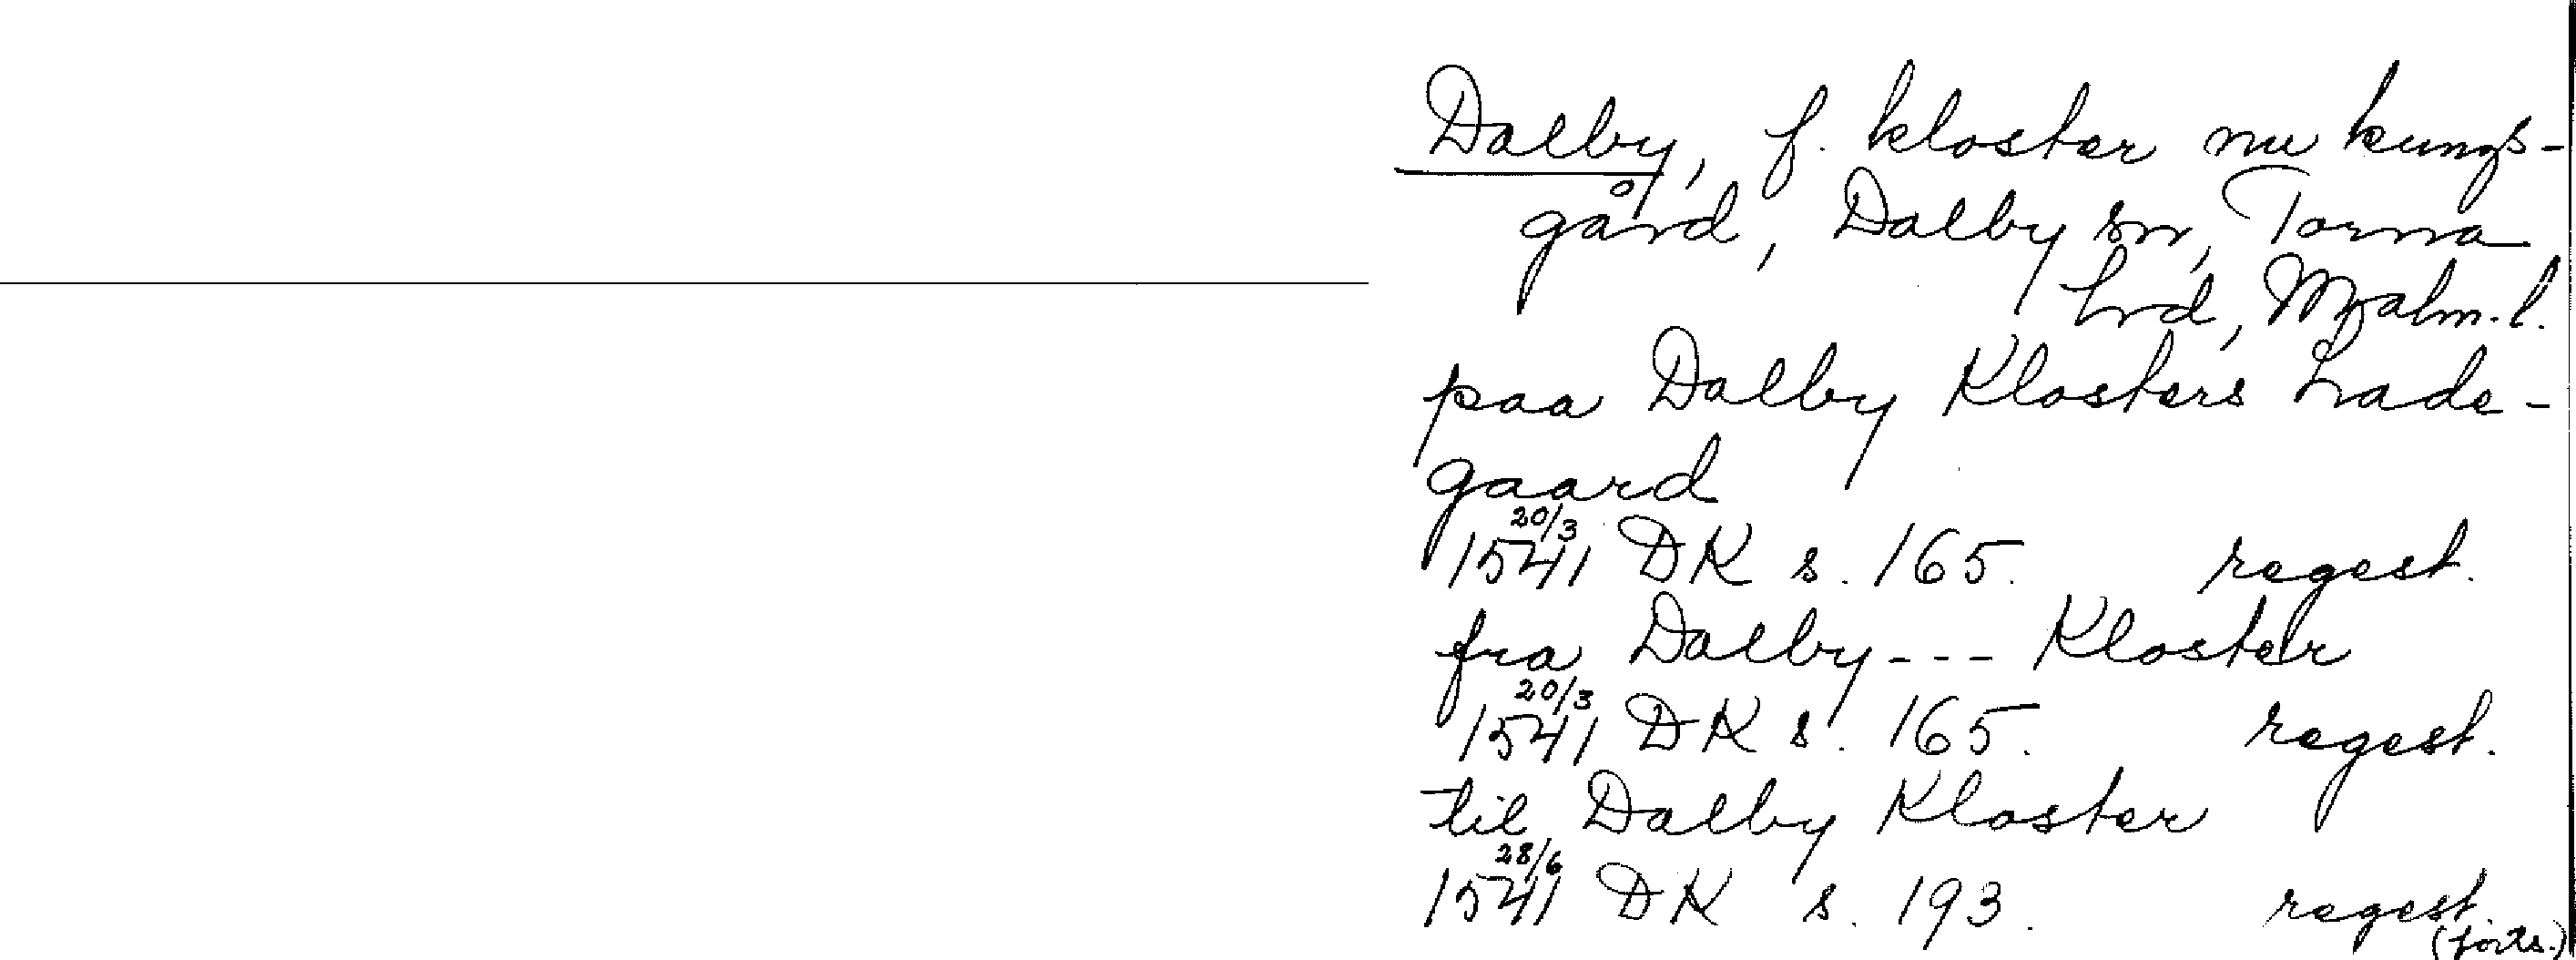 Dalby, f. kloster nu kungs-
gård, Dalby sn, Torna
hrd, Malm. l.
paa Dalby Klosters Lade-
gaard
20/3
1541 DK s. 165. regest.
fra Dalby --- Kloster
20/3
1541 DK s. 165. regest.
til Dalby Kloster
28/6
1541 DK s. 193. regest.
(forts.)